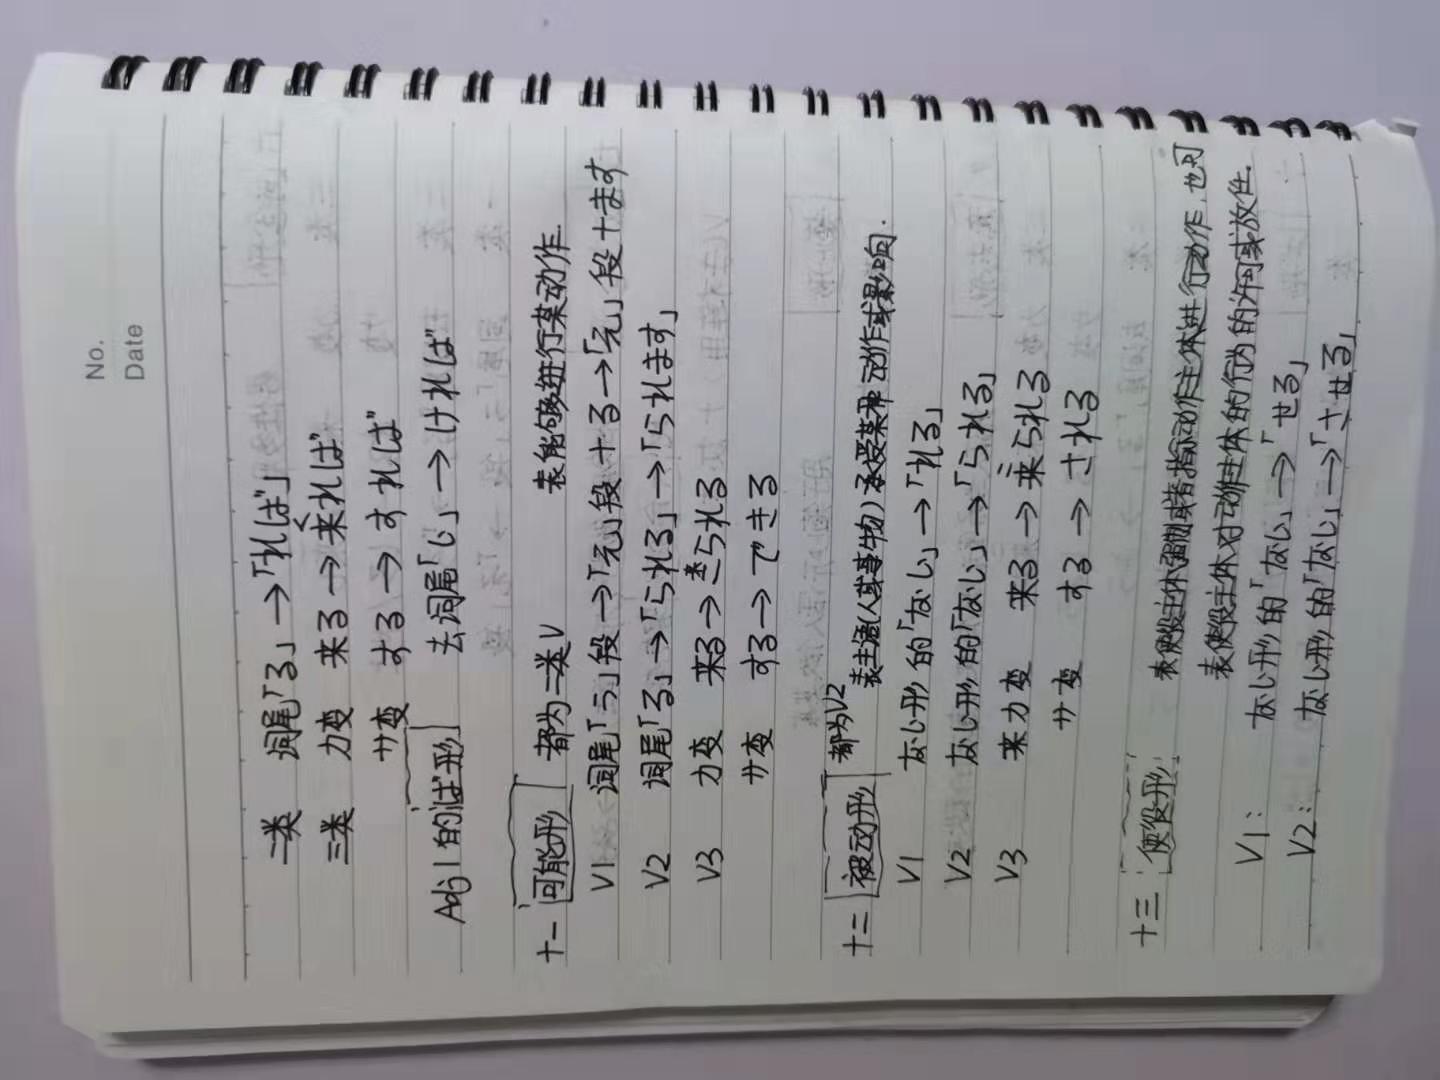 No.
Date
二类 词尾「る」→「れば」
三类 カ变 来る→来れば
サ变 する→すれば
Adj1的ば形 去词尾「い」→ければ
十一 可能形 都为二类V 表能够进行某动作.
V1 词尾「う」段→「え」段+る→「え」段+ます
V2 词尾「る」→「られる」→「られます」
V3 カ变 来る→来られる
サ变 する→できる
十二 被动形 都为V2 表主语(人或事物)承受某种动作或影响.
V1 ない形的「ない」→「れる」
V2 ない形的「ない」→「られる」
V3 来カ变 来る→来られる
サ变 する→される
十三 使役形 表使役主体强制或者指示动作主体进行动作,也可
表使役主体对动作主体的行为的许可或放任.
V1: ない形的「ない」→「せる」
V2: ない形的「ない」→「させる」